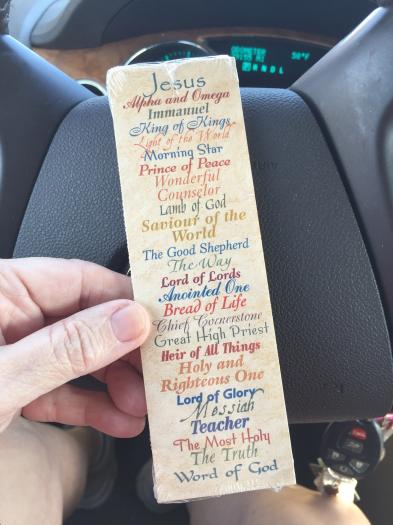 ODOMETER
50°F
Jesus
Alpha and Omega
Immanuel
King of Kings
Light of the World
Morning Star
Prince of Peace
Wonderful
Counselor
Lamb of God
Saviour of the
World
The Good Shepherd
The Way
Lord of Lords
Anointed One
Bread of Life
Chief Cornerstone
Great High Priest
Heir of All Things
Holy and
Righteous One
Lord of Glory
Messiah
Teacher
The Most Holy
The Truth
Word of God